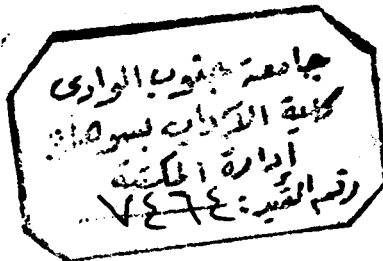 جامعة جنوب الوادى
كلية الآداب بسوهاج
إدارة المكتبة
رقم القيد: ٧٤٦٤